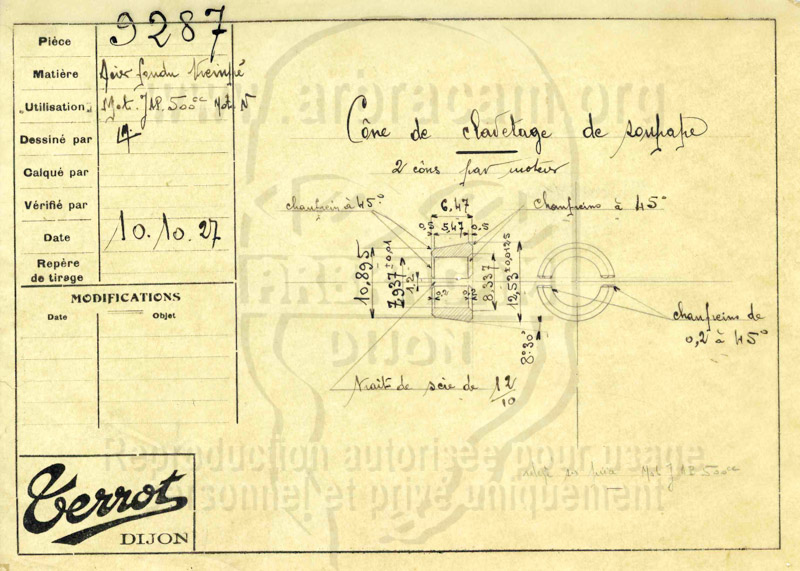 Pièce 9287
Matière Acier fondu trempé
„Utilisation„ Mot. JAP. 500cc Mot. N
Dessiné par
Calqué par
Vérifié par
Date 10.10.27
Repère
de tirage
MODIFICATIONS
Date Objet
Terrot
DIJON
www.arbracam.org
Cône de clavetage de soupape
2 cônes par moteur
chanfrein à 45°
6,47
chanfreins à 45°
0,5 5,47 0,5
10,895
7,937 ±0,01
1,2
8,337
12,53 ±0,0125
8°30'
chanfreins de
0,2 à 45°
trait de scie de 12/10
DIJON
Reproduction autorisée pour usage
personnel et privé uniquement
Mot JAP 500cc